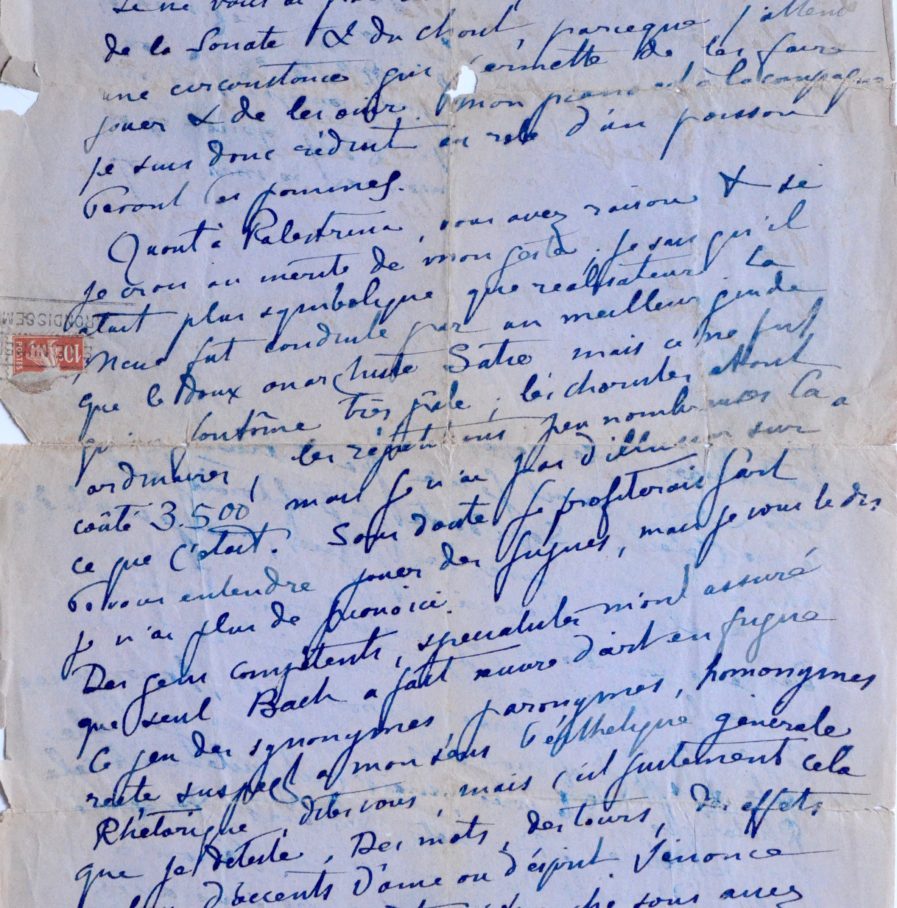 de la Sonate & du chœur, parceque j'attend
une circonstance qui permette de les faire
jouer & de les ouir. mon piano est à la campagne
je suis donc réduit au role d'un poisson
devant les pommes.
Quant à Palestrina, vous avez raison & si
je crois au mérite de mon geste, je sais qu'il
était plus symbolique que réalisateur. La
Messe fut conduite par un meilleur guide
que le doux anarchiste Satie mais ce ne fut
qu'un fantôme très pâle; les choristes étant
ordinaires, les répétitions peu nombreuses Ca a
coûté 3.500 mais je n'ai pas d'illusion sur
ce que c'était. Sans doute je profiterais fort
à vous entendre jouer des fugues, mais je vous le dis
je n'ai plus de piano ici.
Des gens compétents, spécialistes m'ont assuré
que seul Bach a fait œuvre d'art en fugue
Ce jeu des synonymes paronymes, homonymes
reste suspect à mon sens d'esthétique générale
Rhétorique, dites vous, mais c'est justement cela
que je déteste, Des mots, des tours, Des effets
d'accents d'âme ou d'esprit. J'énonce
sous
RONDISSEM
10
POSTES